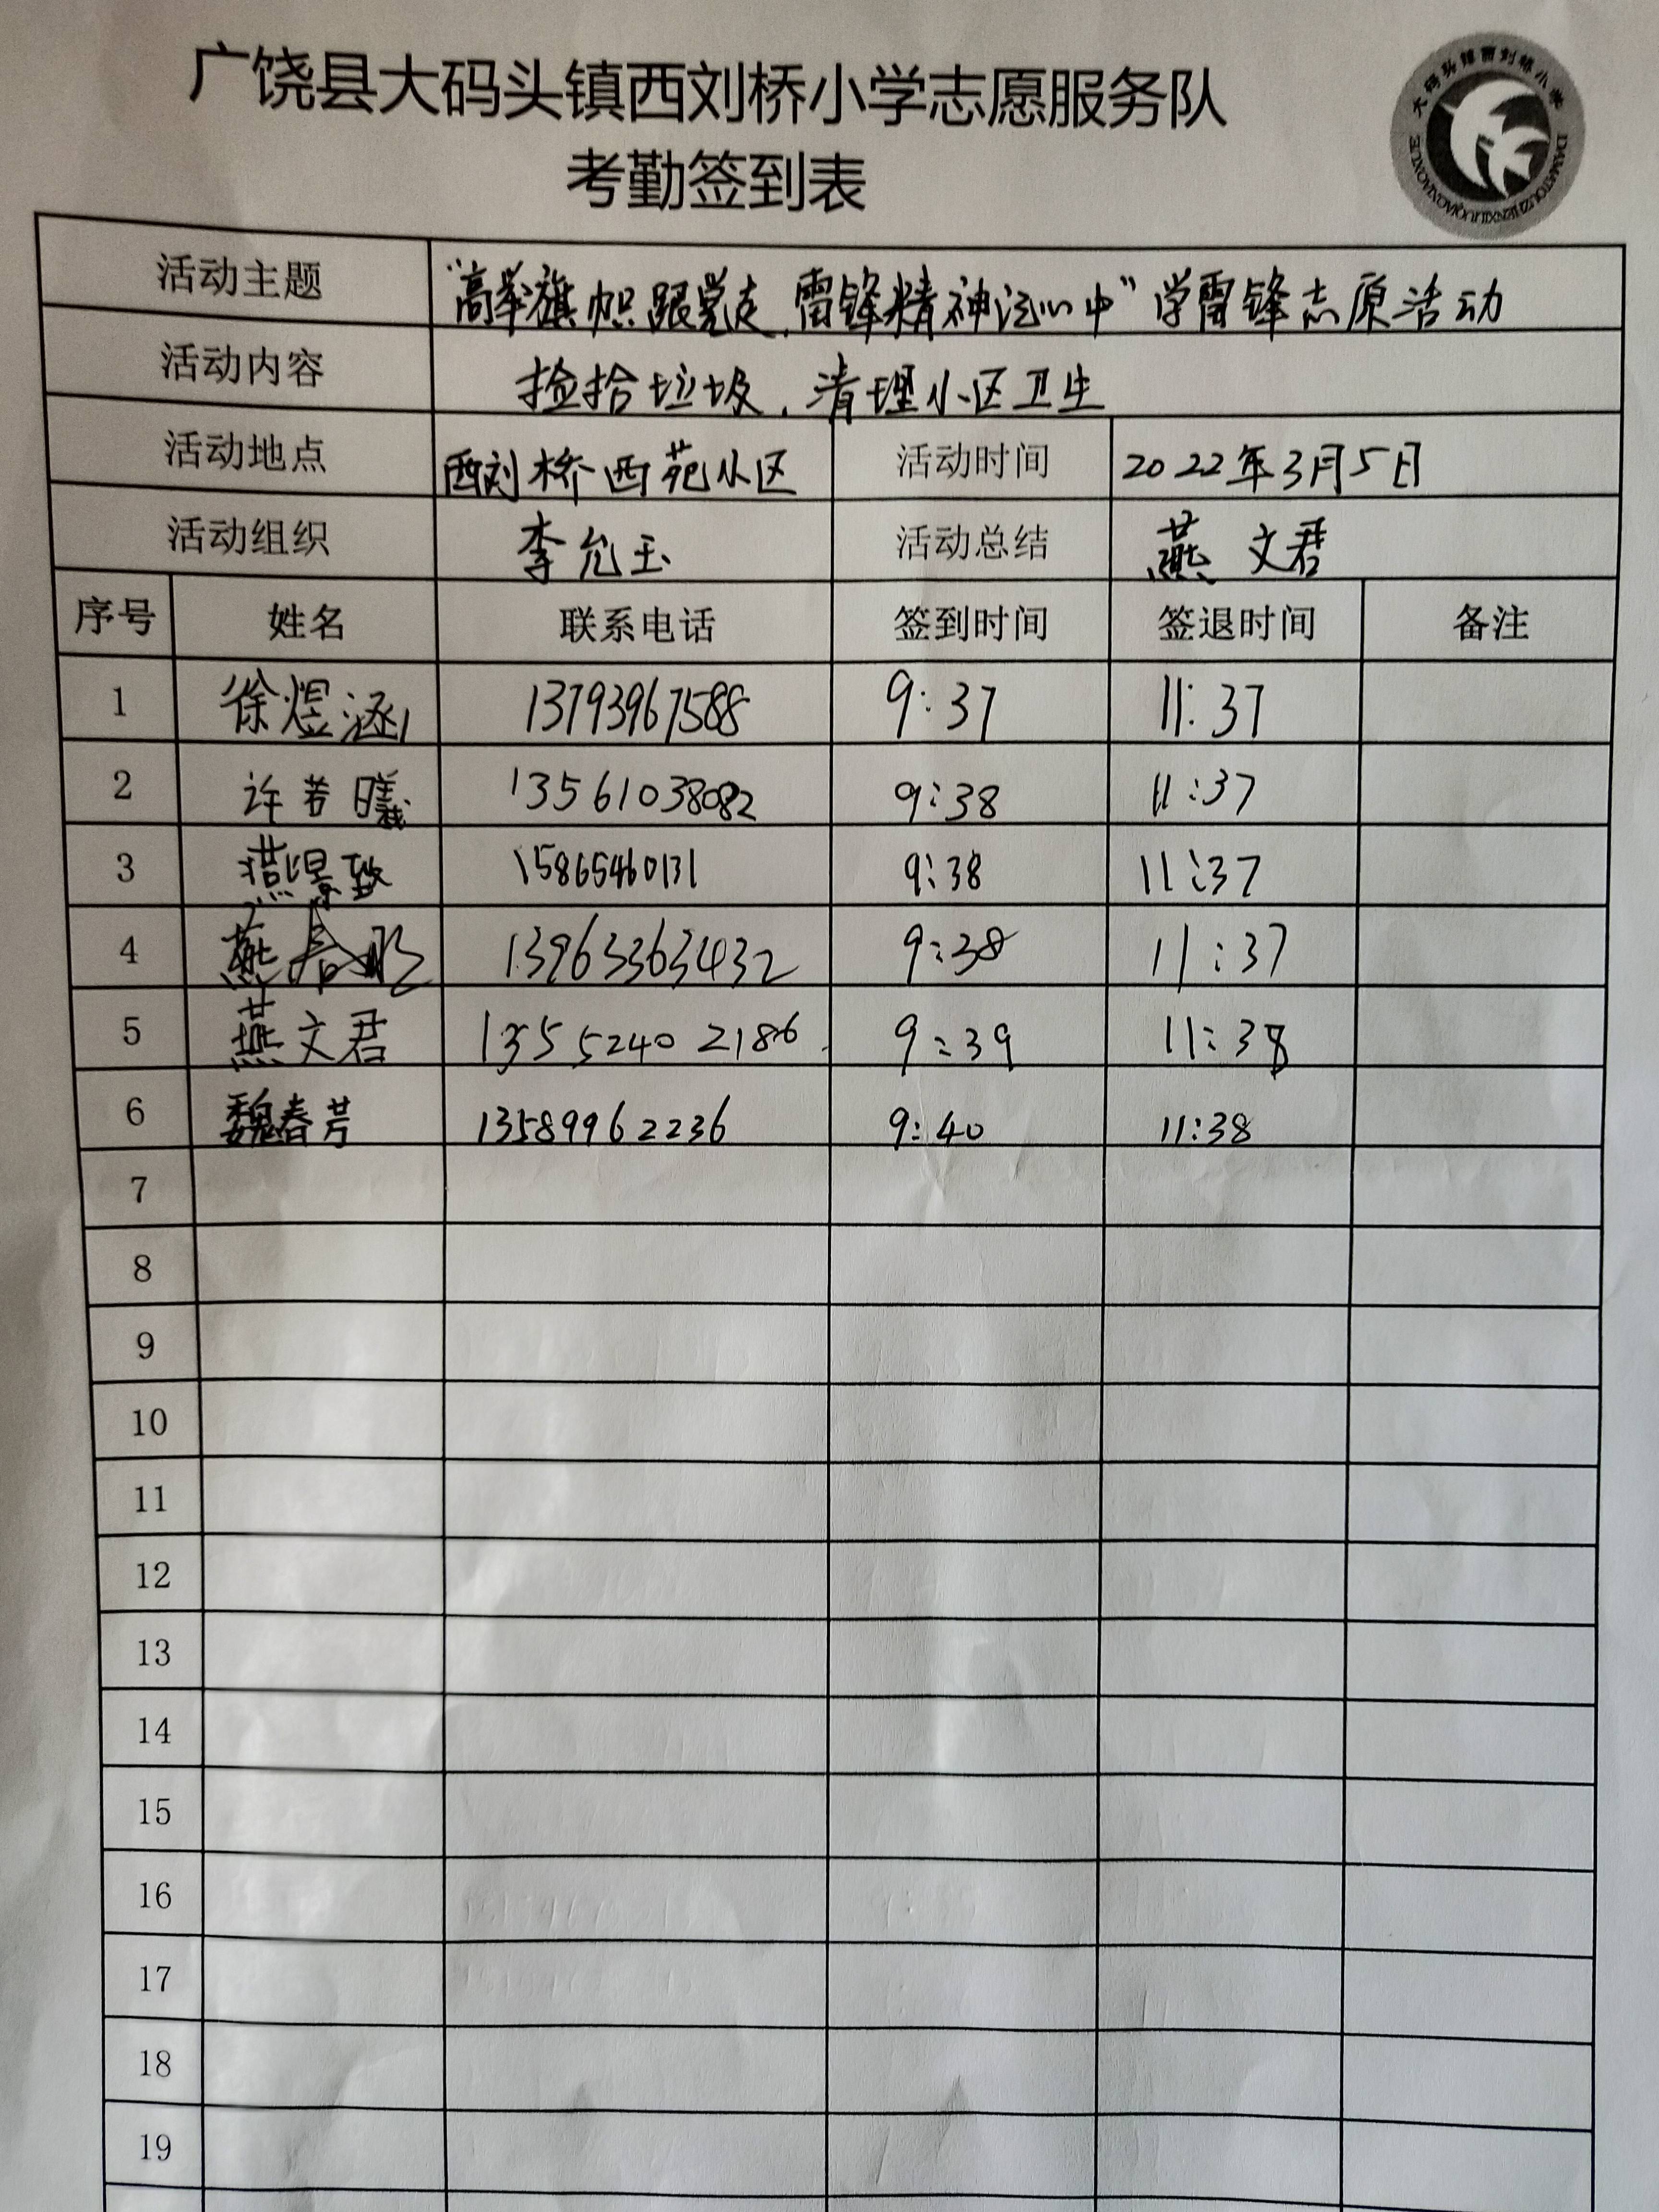 广饶县大码头镇西刘桥小学志愿服务队
大码头镇西刘桥小学
考勤签到表
活动主题 “高举旗帜跟党走,雷锋精神记心中”学雷锋志原活动
活动内容 捡拾垃圾,清理小区卫生
活动地点 西刘桥西苑小区 活动时间 2022年3月5日
活动组织 李允玉 活动总结 燕文君
序号 姓名 联系电话 签到时间 签退时间 备注
1 徐煜涵 13793967588 9:37 11:37
2 许若曦 13561038082 9:38 11:37
3 燕景致 15865460131 9:38 11:37
4 燕 13963363432 9:38 11:37
5 燕文君 13552402186 9:39 11:38
6 魏春芳 13589962236 9:40 11:38
7
8
9
10
11
12
13
14
15
16
17
18
19